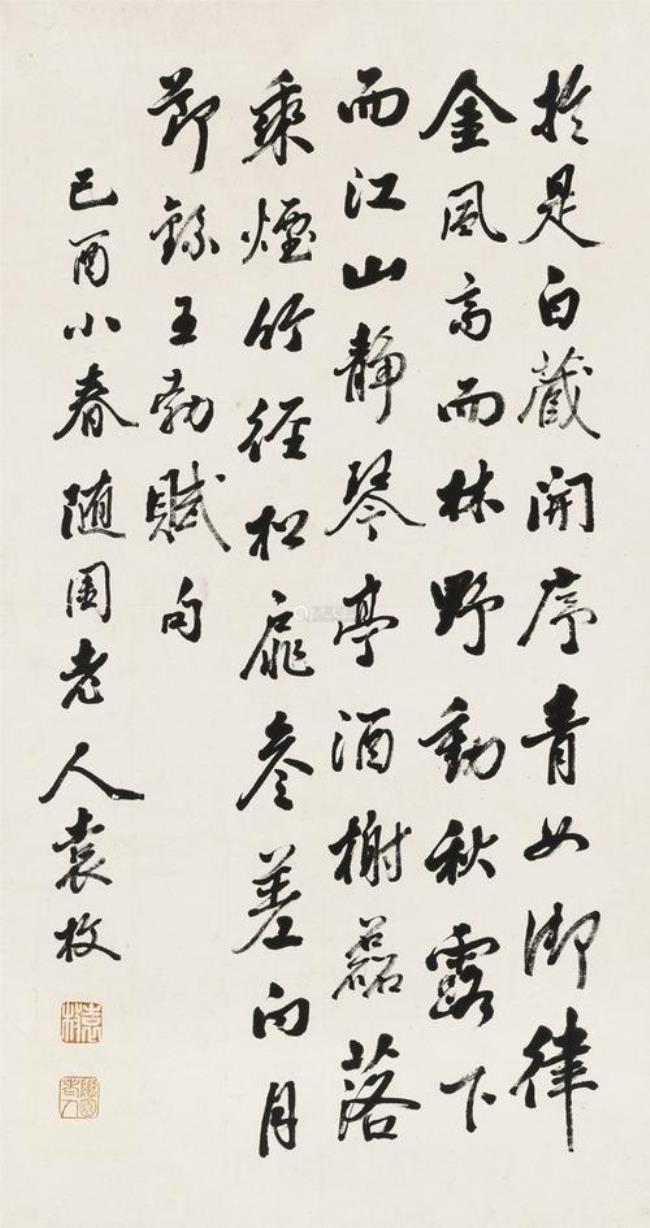 於是白蔵開序青女御律
金風高而林野動秋露下
而江山靜琴亭酒榭磊落
乘煙竹徑松扉參差向月
節錄王勃賦句
己酉小春随園老人袁枚
袁枚